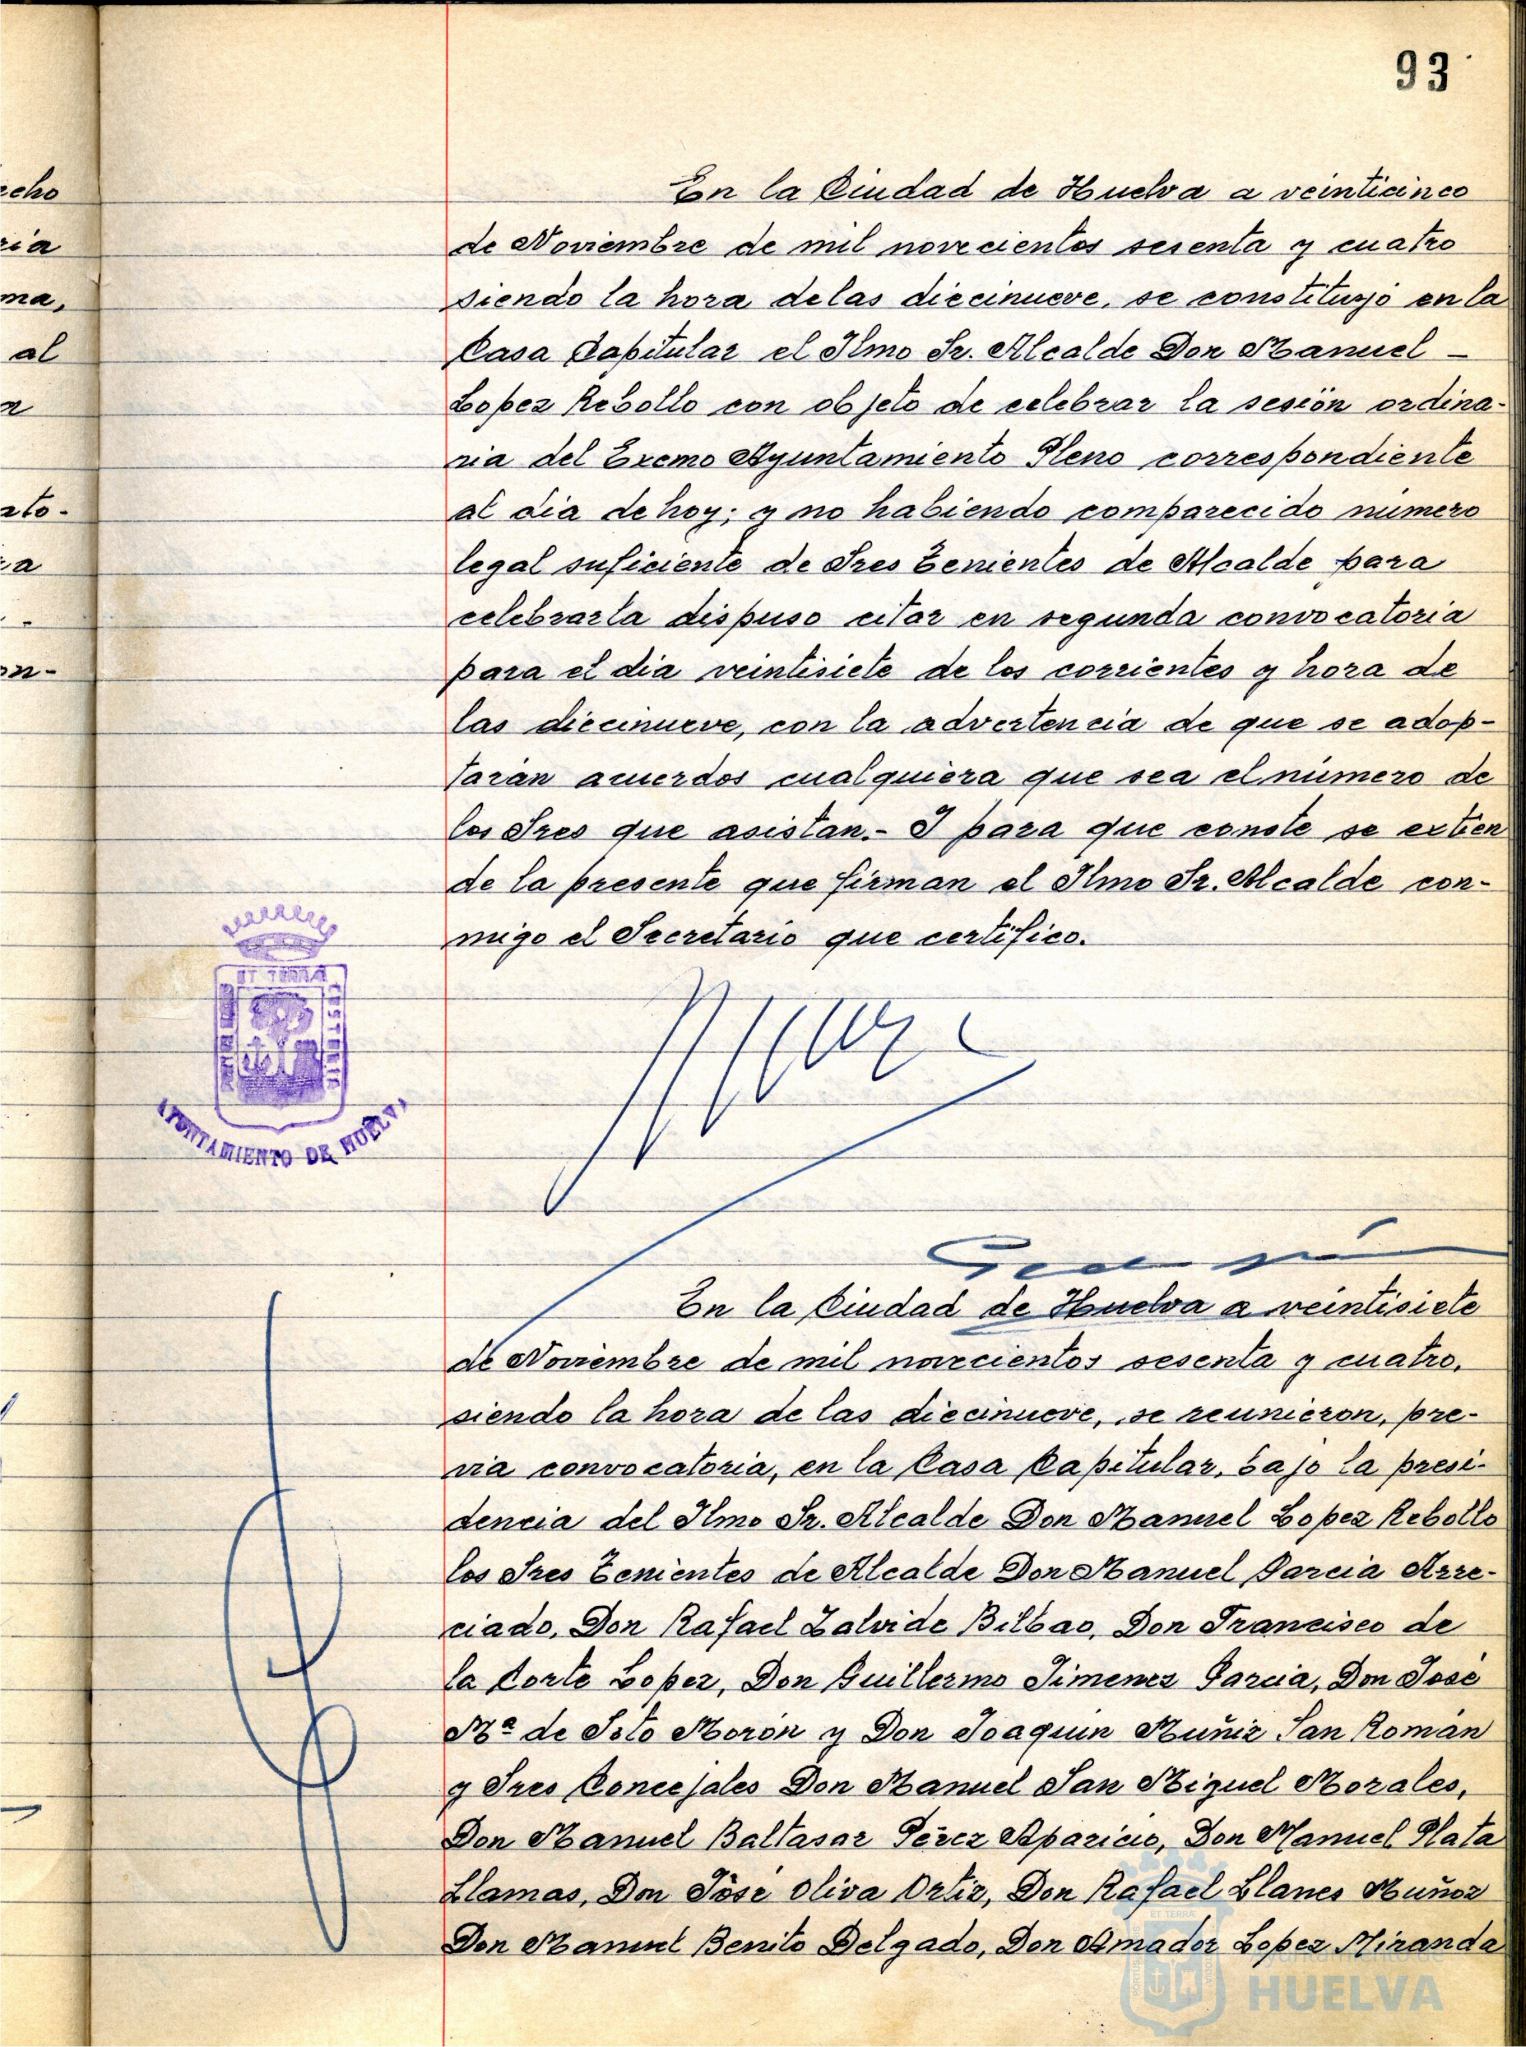 93
echo
ria
ma,
al
n
sto-
a
-
on-
En la Ciudad de Huelva a veinticinco
de Noviembre de mil novecientos sesenta y cuatro
siendo la hora de las diecinueve, se constituyó en la
Casa Capitular el Ilmo Sr. Alcalde Don Manuel -
Lopez Rebollo con objeto de celebrar la sesión ordina-
ria del Excmo Ayuntamiento Pleno correspondiente
al dia de hoy; y no habiendo comparecido número
legal suficiente de Sres Tenientes de Alcalde para
celebrarla dispuso citar en segunda convocatoria
para el dia veintisiete de los corrientes y hora de
las diecinueve, con la advertencia de que se adop-
tarán acuerdos cualquiera que sea el número de
los Sres que asistan.- I para que conste se extien
de la presente que firman el Ilmo Sr. Alcalde con-
migo el Secretario que certifico.
ET TERRA
AYUNTAMIENTO DE HUELVA
En la Ciudad de Huelva a veintisiete
de Noviembre de mil novecientos sesenta y cuatro,
siendo la hora de las diecinueve, se reunieron, pre-
via convocatoria, en la Casa Capitular, bajo la presi-
dencia del Ilmo Sr. Alcalde Don Manuel Lopez Rebollo
los Sres Tenientes de Alcalde Don Manuel Garcia Arre-
ciado, Don Rafael Zalvide Bilbao, Don Francisco de
la Corte Lopez, Don Guillermo Jimenez Garcia, Don José
Mª de Soto Morón y Don Joaquin Muñiz San Román
y Sres Concejales Don Manuel San Miguel Morales,
Don Manuel Baltasar Pérez Aparicio, Don Manuel Plata
Llamas, Don José Oliva Ortiz, Don Rafael Llanes Muñoz
Don Manuel Benito Delgado, Don Amador Lopez Miranda
Ayuntamiento de
HUELVA